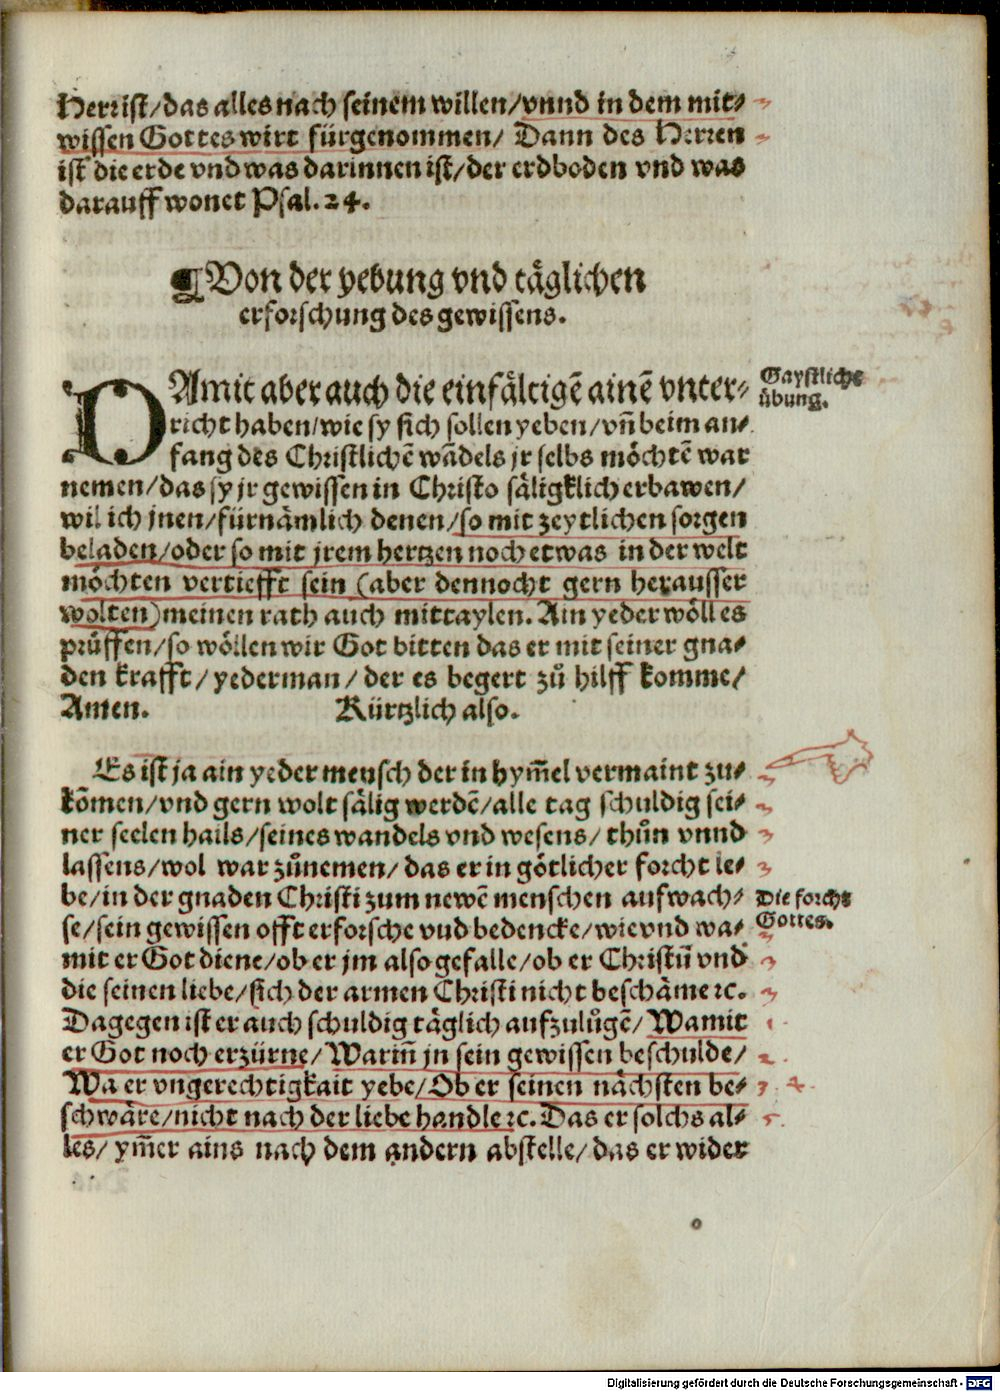 Herr ist/das alles nach seinem willen/vnnd in dem mit⸗
wissen Gottes wirt fürgenommen/ Dann des Herren
ist die erde vnd was darinnen ist/der erdboden vnd was
darauff wonet Psal. 24.
¶Von der yebung vnd täglichen
erforschung des gewissens.
DAmit aber auch die einfältigē ainē vnter⸗
richt haben/wie sy sich sollen yeben/vn̄ beim an⸗
fang des Christlichē wādels jr selbs möchtē war
nemen/das sy jr gewissen in Christo säligklich erbawen/
wil ich jnen/fürnämlich denen/so mit zeytlichen sorgen
beladen/oder so mit jrem hertzen noch etwas in der welt
möchten vertiefft sein (aber dennocht gern herausser
wolten) meinen rath auch mittaylen. Ain yeder wöll es
prüffen/so wöllen wir Got bitten das er mit seiner gna⸗
den krafft/ yederman/ der es begert zů hilff komme/
Amen. Kürtzlich also.
Gaystliche
übung.
Es ist ja ain yeder mensch der in hym̄el vermaint zu⸗
kōmen/vnd gern wolt sälig werdē/alle tag schuldig sei⸗
ner seelen hails/seines wandels vnd wesens/ thůn vnnd
lassens/wol war zůnemen/ das er in götlicher forcht le⸗
be/in der gnaden Christi zum newē menschen aufwach⸗
se/sein gewissen offt erforsche vnd bedencke/wie vnd wa⸗
mit er Got diene/ob er jm also gefalle/ob er Christū vnd
die seinen liebe/sich der armen Christi nicht beschäme ꝛc.
Dagegen ist er auch schuldig täglich aufzulůgē/ Wamit
er Got noch erzürne/ Warin̄ jn sein gewissen beschulde/
Wa er vngerechtigkait yebe/Ob er seinen nächsten be⸗
schwäre/nicht nach der liebe handle ꝛc. Das er solchs al⸗
les/ ym̄er ains nach dem andern abstelle/das er wider
Die forcht
Gottes.
Digitalisierung gefördert durch die Deutsche Forschungsgemeinschaft - DFG